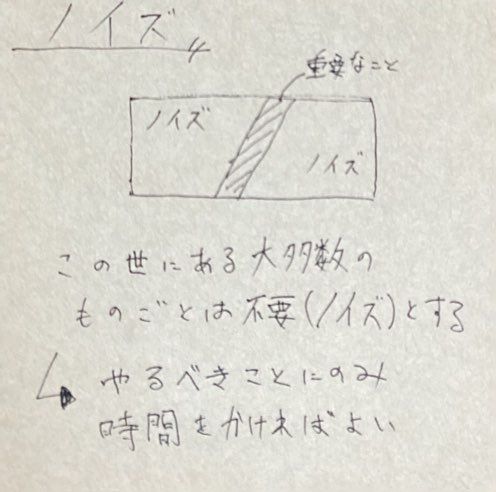 ノイズ
重要なこと
ノイズ
ノイズ
この世にある大多数の
ものごとは不要(ノイズ)とする
やるべきことにのみ
時間をかければよい